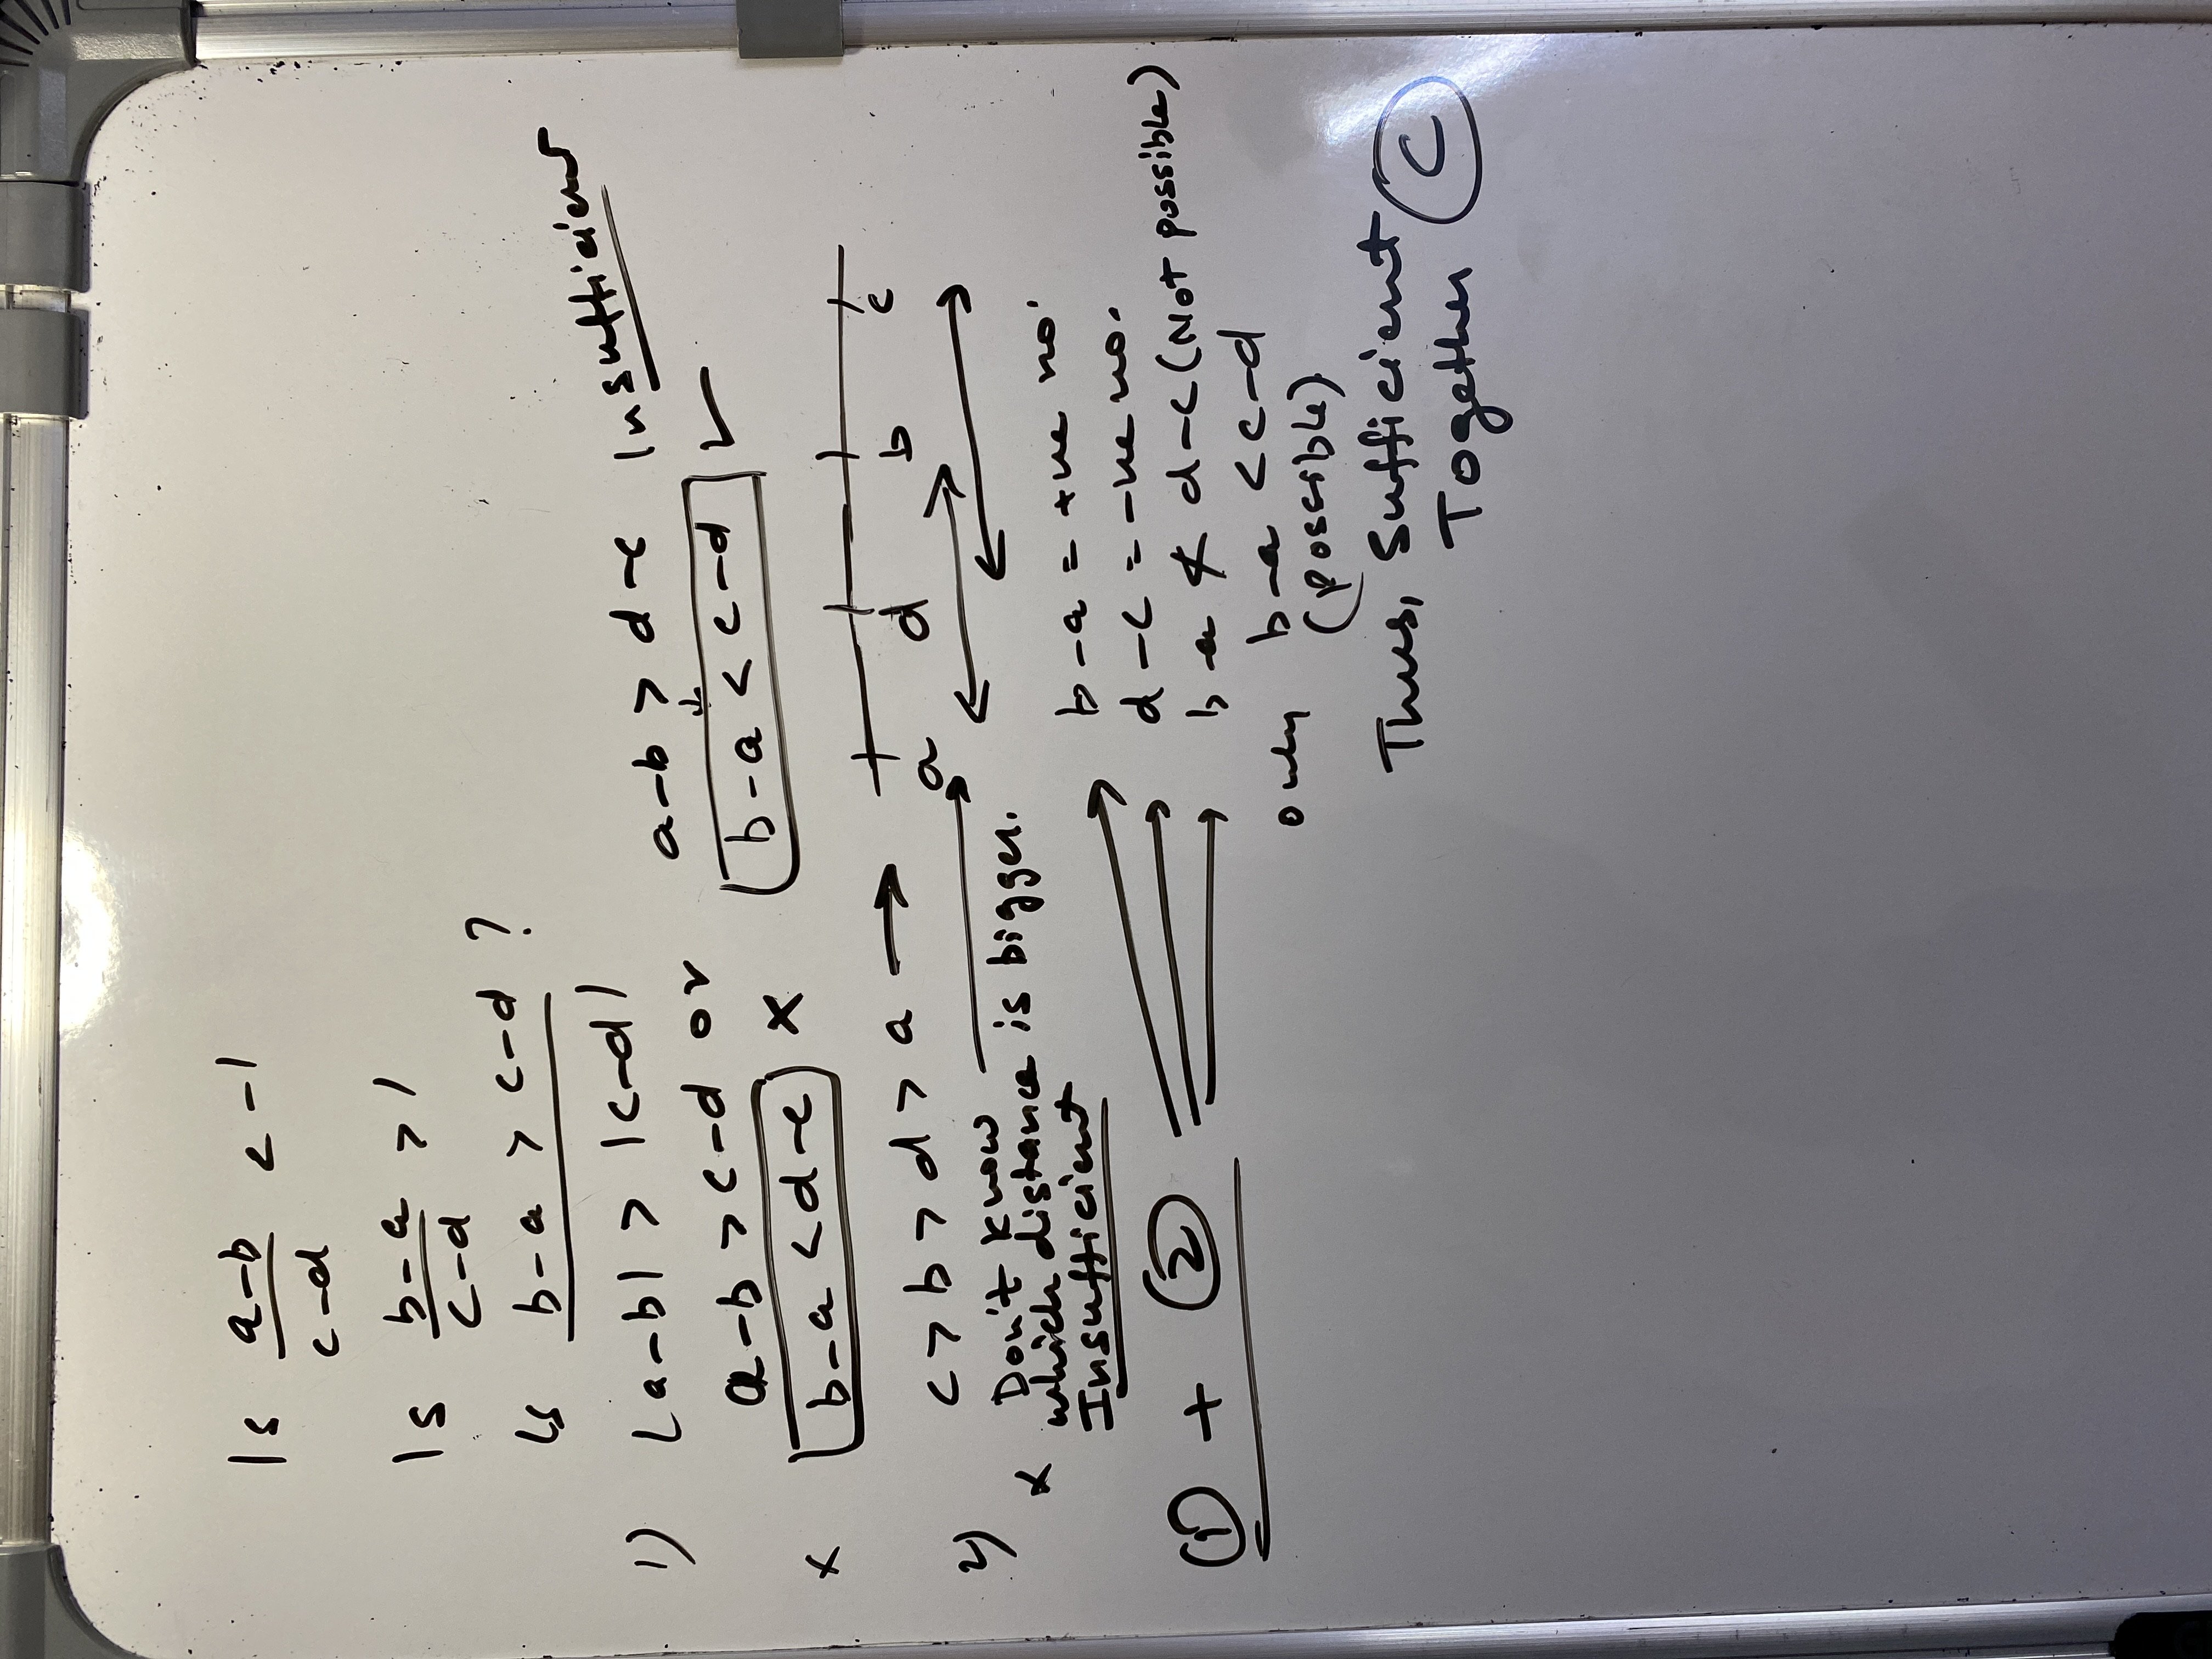 Is a-b/c-d < -1
Is b-a/c-d > 1
Is b-a > c-d ?
1) |a-b| > |c-d|
a-b > c-d or
a-b > d-c Insufficient
x b-a < d-c x
b-a < c-d ✓
2) c > b > d > a →
a d b c
x Don't know
which distance is bigger.
Insufficient
① + ②
b-a = +ve no.
d-c = -ve no.
b-a ≮ d-c (Not possible)
only b-a < c-d
(possible)
Thus, Sufficient
Together C